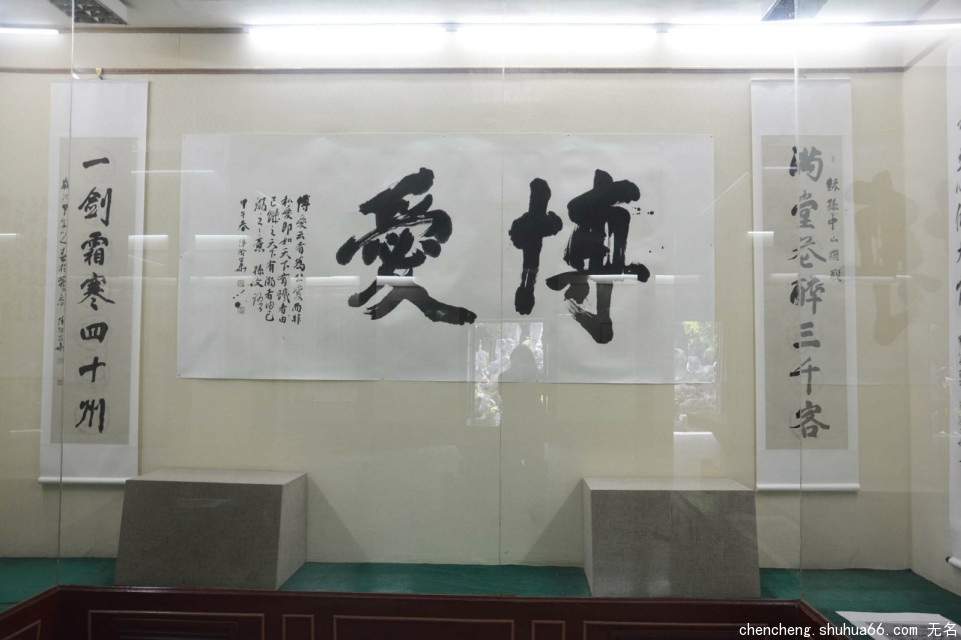 满堂花醉三千客
孫中山撰聯
博愛
博愛云者為公愛而非
私愛即如天下有飢者由
己飢之天下有溺者由己
溺之之意 孫文語
甲午春
一劍霜寒四十州
chencheng.shuhua66.com 无名